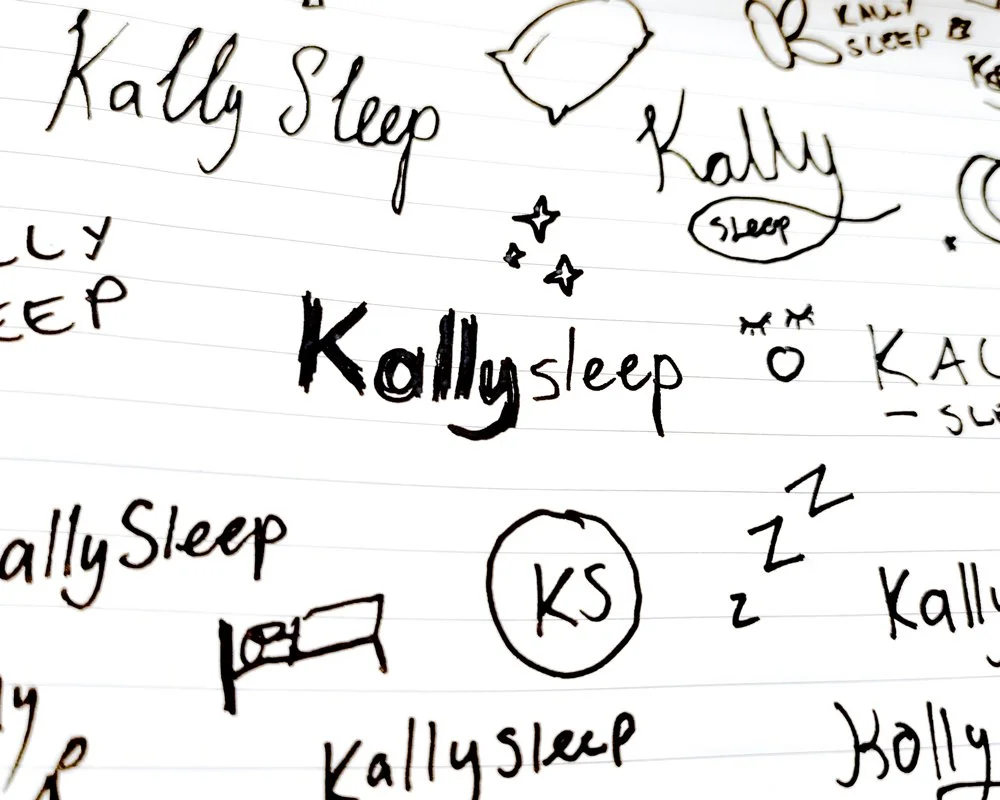 Kally Sleep
KALLY
SLEEP
Kally
sleep
LLY
EEP
Kallysleep
KAL
- SLE
allySleep
KS
z z z
Kally
lly
p
Kallysleep
Kolly